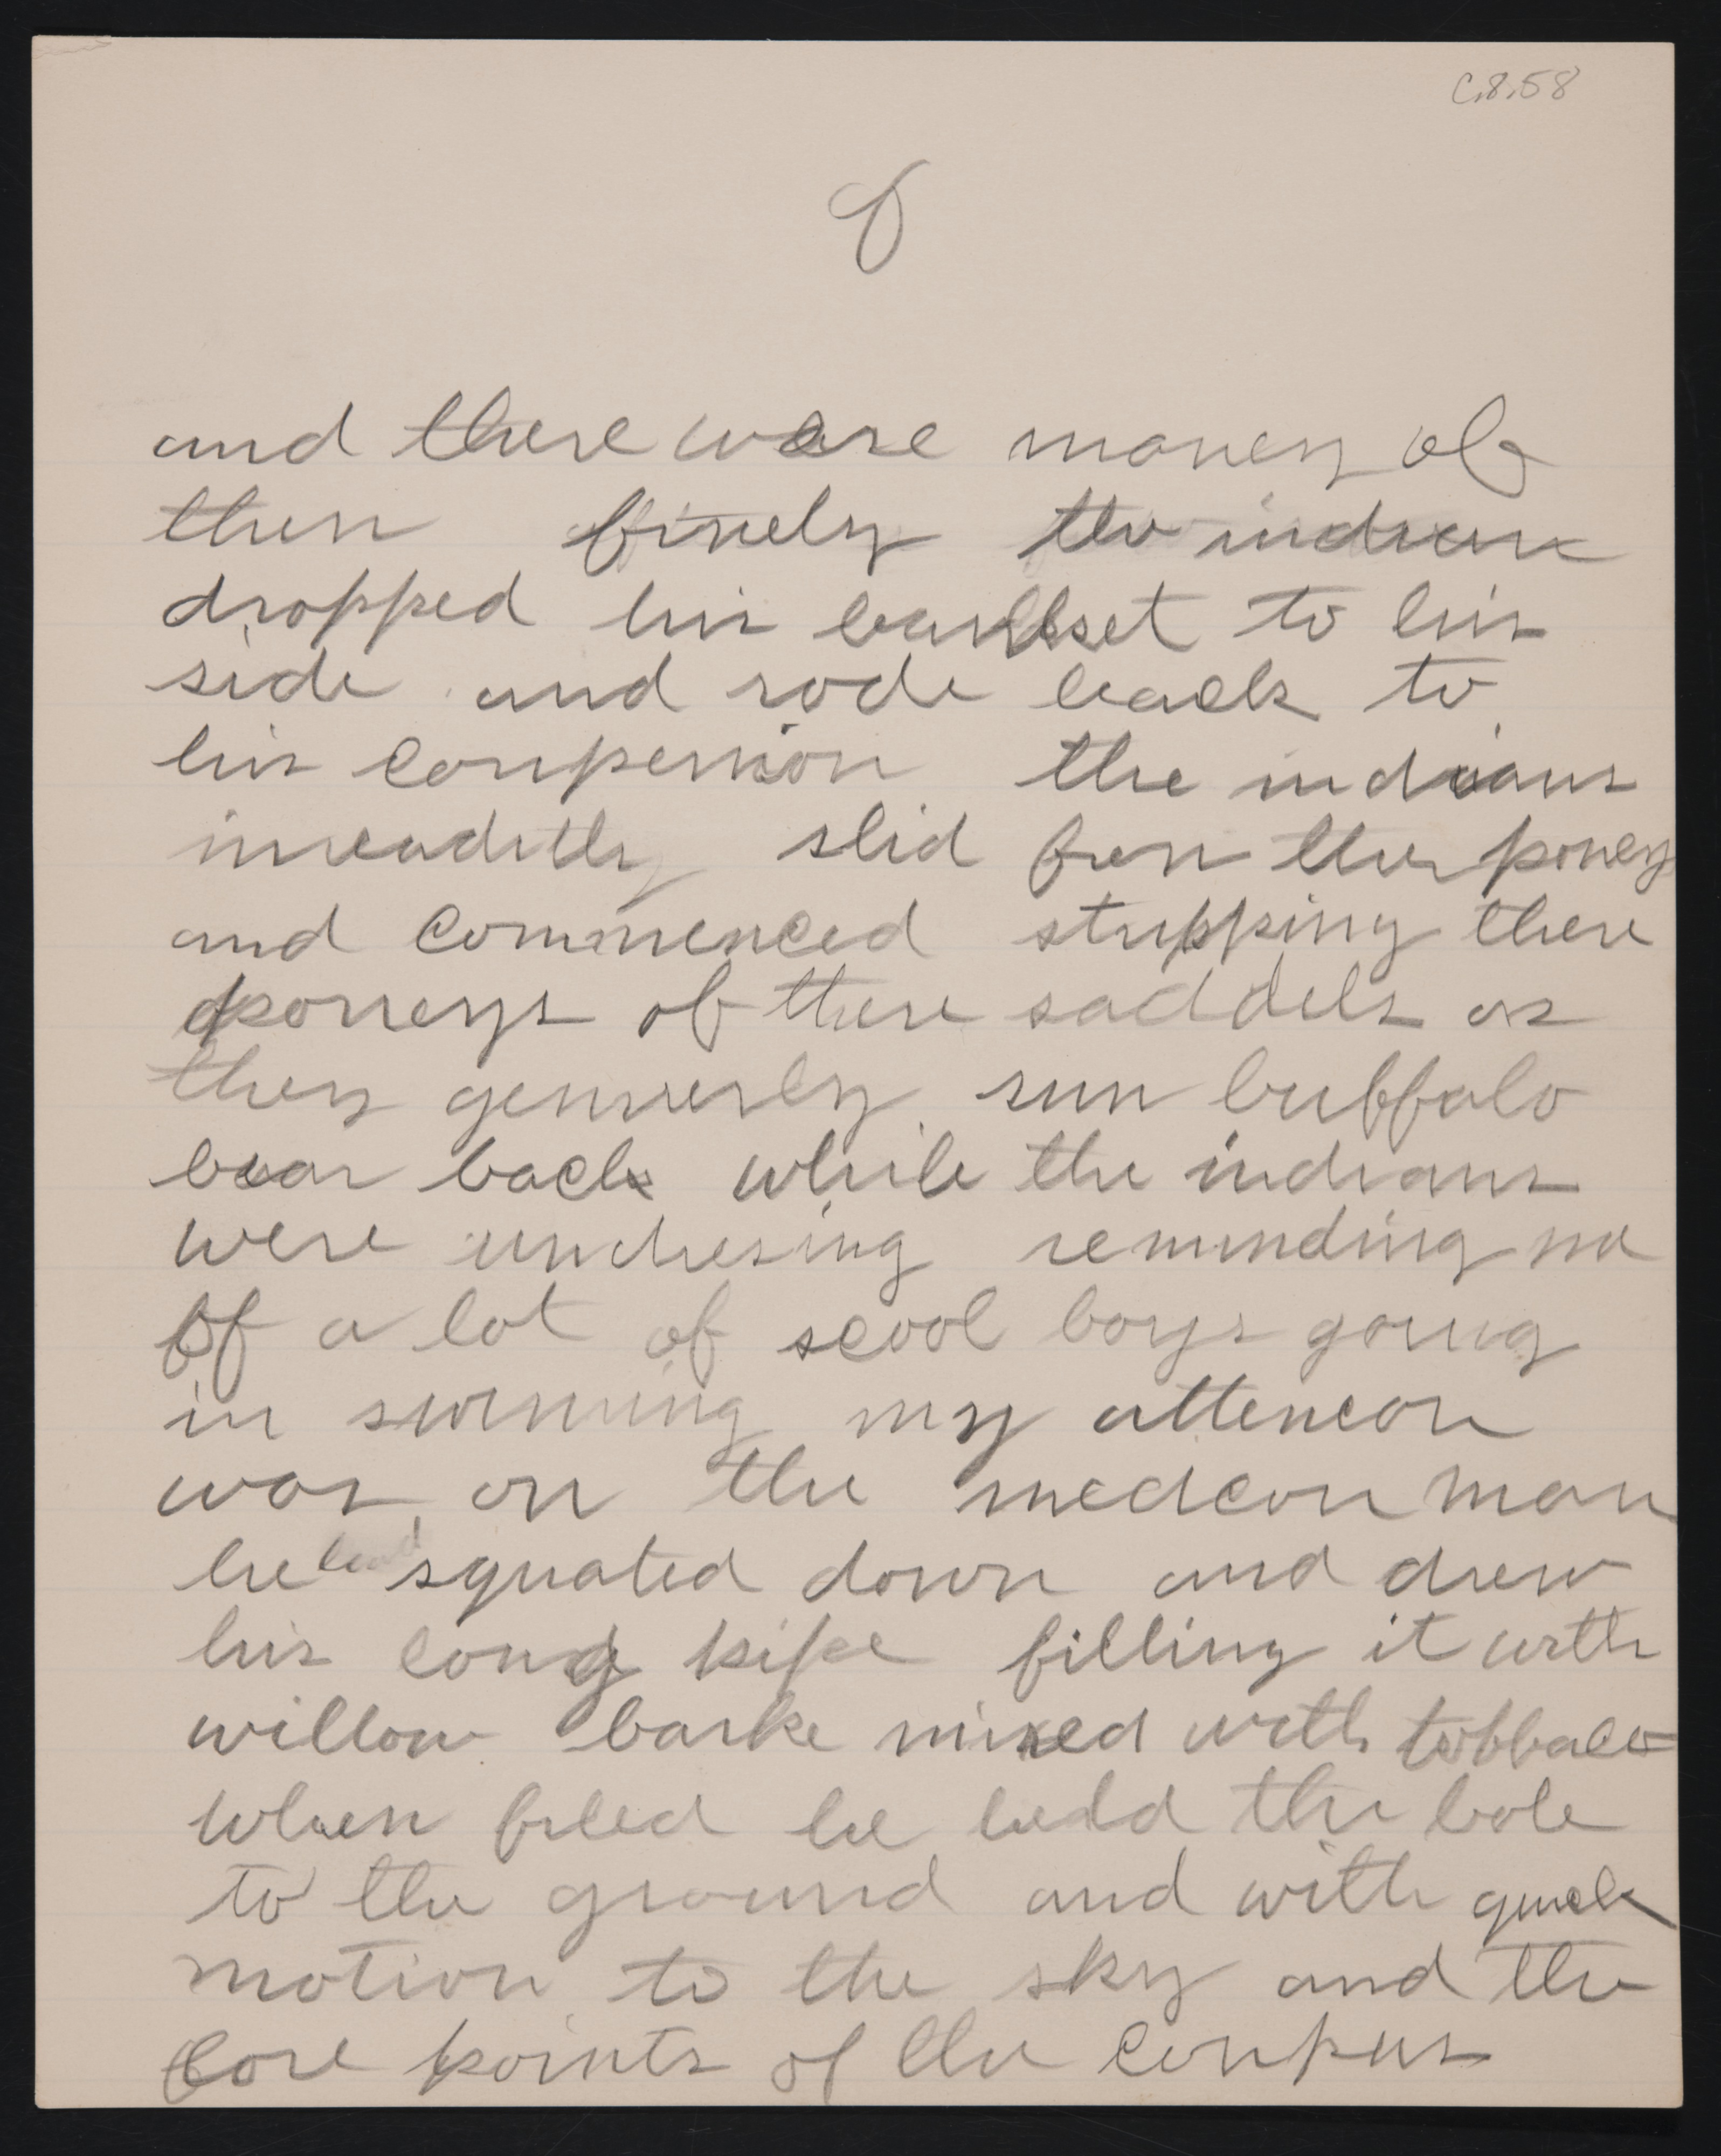 C.8.58
8
and there ware maney of
then finely the indian
dropped his bankset to his
side and rode back to
his conpenion the indians
imeaditly slid fron ther poney
and commenced stripping there
poneys of there saddels as
they generely run buffalo
bear back while the indians
were undresing reminding me
of a lot of scool boys going
in swiming my attencon
was on the medcon man
he had squated down and drew
his long pipe filling it with
willow barke mixed with tobbaco
when filed he held the bole
to the ground and with quick
motion to the sky and the
fore points of the conpus